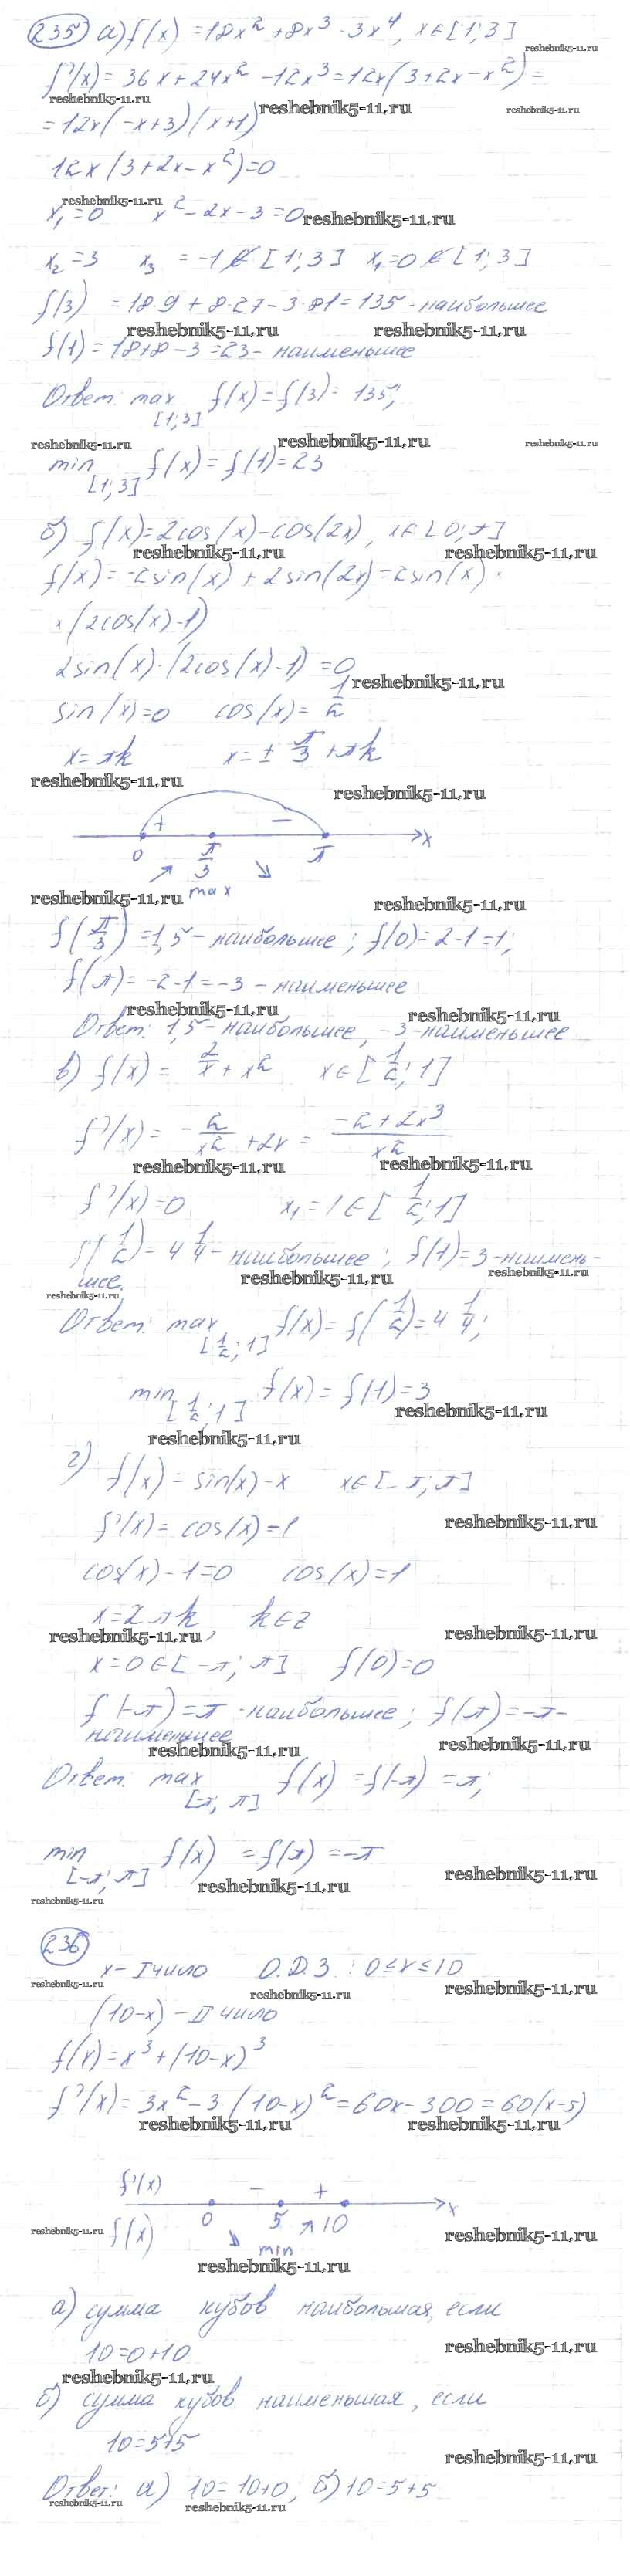 235 а) f(x) = 18x² + 8x³ - 3x⁴, x∈[1;3]
reshebnik5-11.ru
f'(x) = 36x + 24x² - 12x³ = 12x(3+2x-x²) =
reshebnik5-11.ru reshebnik5-11.ru reshebnik5-11.ru
= 12x(-x+3)(x+1)
12x(3+2x-x²)=0
reshebnik5-11.ru
x₁=0 x²-2x-3=0 reshebnik5-11.ru
x₂=3 x₃ = -1 ∉ [1;3] x₁=0 ∉ [1;3]
f(3) = 18·9 + 8·27 - 3·81 = 135 - наибольшее
reshebnik5-11.ru reshebnik5-11.ru
f(1) = 18+8-3 = 23 - наименьшее
Ответ: max f(x) = f(3) = 135;
[1;3]
reshebnik5-11.ru reshebnik5-11.ru reshebnik5-11.ru
min f(x) = f(1) = 23
[1;3]
б) f(x)=2cos(x)-cos(2x), x∈[0;π]
reshebnik5-11.ru reshebnik5-11.ru
f(x) = -2sin(x) + 2sin(2x) = 2sin(x) ·
× (2cos(x)-1)
2sin(x)·(2cos(x)-1) = 0
reshebnik5-11.ru
sin(x)=0 cos(x) = 1/2
x=πk x= ± π/3 + πk
reshebnik5-11.ru reshebnik5-11.ru
+ - x
0 π/3 π
↗ max ↘
reshebnik5-11.ru reshebnik5-11.ru
f(π/3) = 1,5 - наибольшее; f(0) = 2-1 = 1;
f(π) = -2-1 = -3 - наименьшее
reshebnik5-11.ru reshebnik5-11.ru
Ответ: 1,5 - наибольшее, -3 - наименьшее
в) f(x) = 2/x + x² x∈[1/2;1]
f'(x) = -2/x² + 2x = (-2+2x³)/x²
reshebnik5-11.ru reshebnik5-11.ru
f'(x)=0 x₁=1∈[1/2;1]
f(1/2) = 4 1/4 - наибольшее; f(1)=3-наимень-
шее. reshebnik5-11.ru reshebnik5-11.ru
reshebnik5-11.ru
Ответ: max f(x) = f(1/2) = 4 1/4;
[1/2;1]
min f(x) = f(1) = 3
[1/2;1] reshebnik5-11.ru
reshebnik5-11.ru
г) f(x) = sin(x)-x x∈[-π;π]
f'(x) = cos(x)-1 reshebnik5-11.ru
cos(x)-1=0 cos(x)=1
x=2πk, k∈z
reshebnik5-11.ru reshebnik5-11.ru
x=0∈[-π;π] f(0)=0
f(-π) = π - наибольшее; f(π) = -π-
наименьшее
reshebnik5-11.ru reshebnik5-11.ru
Ответ: max f(x) = f(-π) = π;
[-π;π]
min f(x) = f(π) = -π
[-π;π] reshebnik5-11.ru reshebnik5-11.ru
reshebnik5-11.ru
236
x - I число О.Д.З. : 0≤x≤10
reshebnik5-11.ru reshebnik5-11.ru reshebnik5-11.ru
(10-x) - II число
f(x) = x³+(10-x)³
f'(x) = 3x² - 3(10-x)² = 60x-300 = 60(x-5)
reshebnik5-11.ru reshebnik5-11.ru
f'(x) - + x
0 5 10
reshebnik5-11.ru f(x) ↘ min ↗ reshebnik5-11.ru
reshebnik5-11.ru
а) сумма кубов наибольшая, если
10=0+10 reshebnik5-11.ru
reshebnik5-11.ru
б) сумма кубов наименьшая, если
10=5+5
reshebnik5-11.ru
Ответ: а) 10=10+0, б) 10=5+5
reshebnik5-11.ru reshebnik5-11.ru